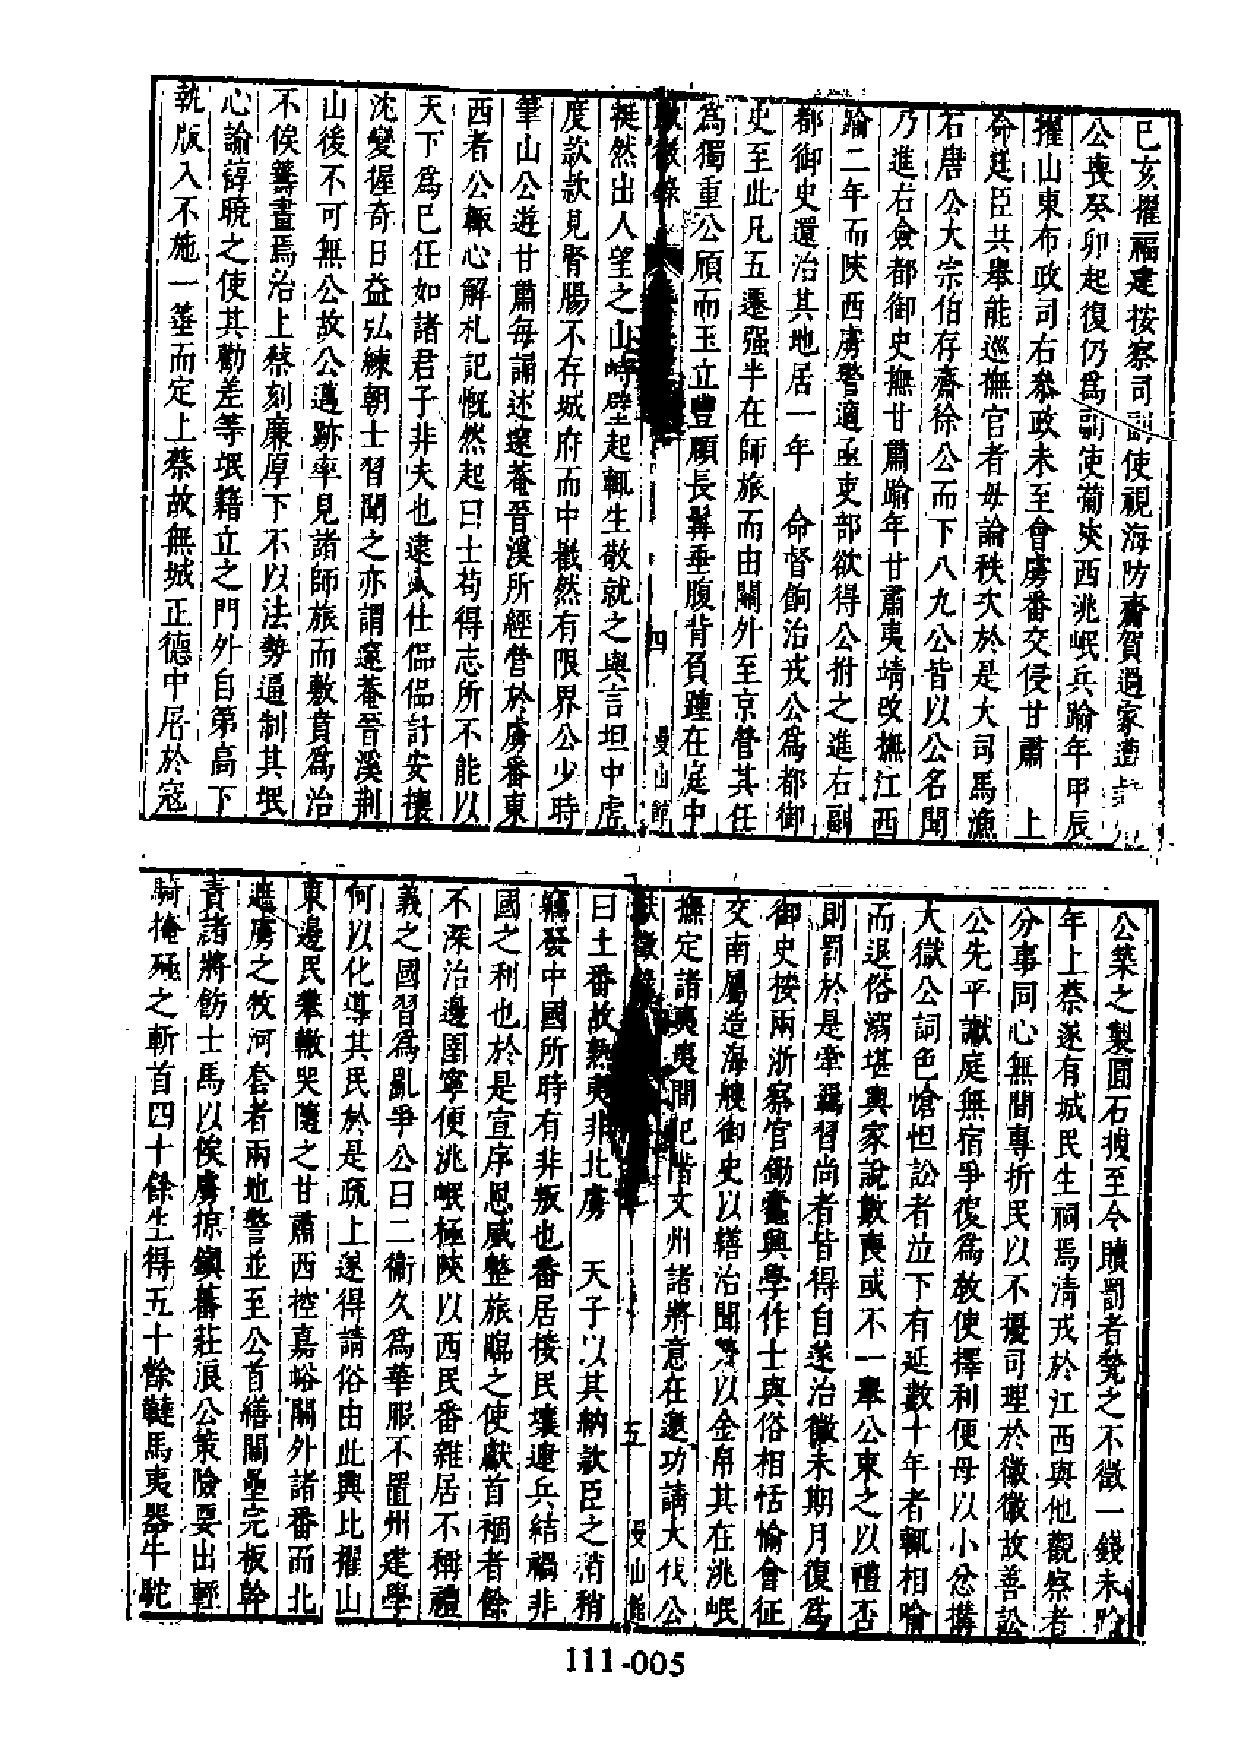 己亥擢福建按察司副使視海防齎賀過家遭
公喪癸卯起復仍為副使備陝西洮岷兵踰年甲辰
擢山東布政司右叅政未至會虜番交侵甘肅　上
命廷臣共舉能巡撫官者毋論秩次於是大司馬漁
石唐公大宗伯存齋徐公而下八九公皆以公名聞
乃進右僉都御史撫甘肅踰年甘肅夷靖改撫江西
踰二年而陝西虜警適亟吏部欲得公拊之進右副
都御史還治其地居一年　命督餉治戎公為都御
史至此凡五遷强半在師旅而由關外至京營其任
為獨重公頎而玉立豐頤長髯垂腹背負踵在庭中
獻徵錄　四　曼山館
挺然出人望之山峙壁起輒生敬就之與言坦中虛
度款款見腎腸不存城府而中嶻然有限界公少時
筆山公遊甘肅每誦述邃菴晉溪所經營於虜番東
西者公輒心解札記慨然起曰士苟得志所不能以
天下為己任如諸君子非夫也逮入仕倡倡計安攘
沈變握奇日益弘練朝士習聞之亦謂邃菴晉溪荆
山後不可無公故公邁跡率見諸師旅而敷賁為治
不俟籌畫焉治上蔡刻廉厚下不以法勢逼制其氓
心諭諄曉之使其勸差等氓籍立之門外自第高下
執版入不施一箠而定上蔡故無城正德中屠於寇
公築之製圓石捍至今贖罰者甃之不徵一錢未
年上蔡遂有城民生祠焉清戎於江西與他觀察者
分事同心無間專折民以不擾司理於徽徽故善訟
公先平讞庭無宿爭復為教使擇利便毋以小忿搆
大獄公詞色愴怛訟者泣下有延數十年者輒相
而退俗溺堪輿家說數喪或不一舉公東之以禮否
則罰於是牽溺習尚者皆得自遂治徽未期月復為
御史按兩浙察官鋤蠹興學作士與俗相恬愉會征
交南屬造海艘御史以繕治聞賚以金帛其在洮岷
撫定諸夷夷間犯階文州諸將意在邀功請大伐公
獻徵錄　五　曼山館
曰土番故熟夷非北虜　天子以其納款臣之消稍
竊發中國所時有非叛也番居接民壤連兵結禍非
國之利也於是宣序恩威整旅臨之使獻首稇者餘
不深治邊圉寧便洮岷極陝以西民番雜居不稱禮
義之國習為亂爭公曰二衞久為華服不置州建學
何以化導其民於是疏上遂得請俗由此興比擢山
東邊民攀轍哭隨之甘肅西控嘉峪關外諸番而北
遮虜之牧河套者兩地警並至公首繕關壘完板幹
責諸將飭士馬以俟虜掠鎮番莊浪公策險要出輕
騎掩殛之斬首四十餘生得五十餘韃馬夷器牛駝
111-005